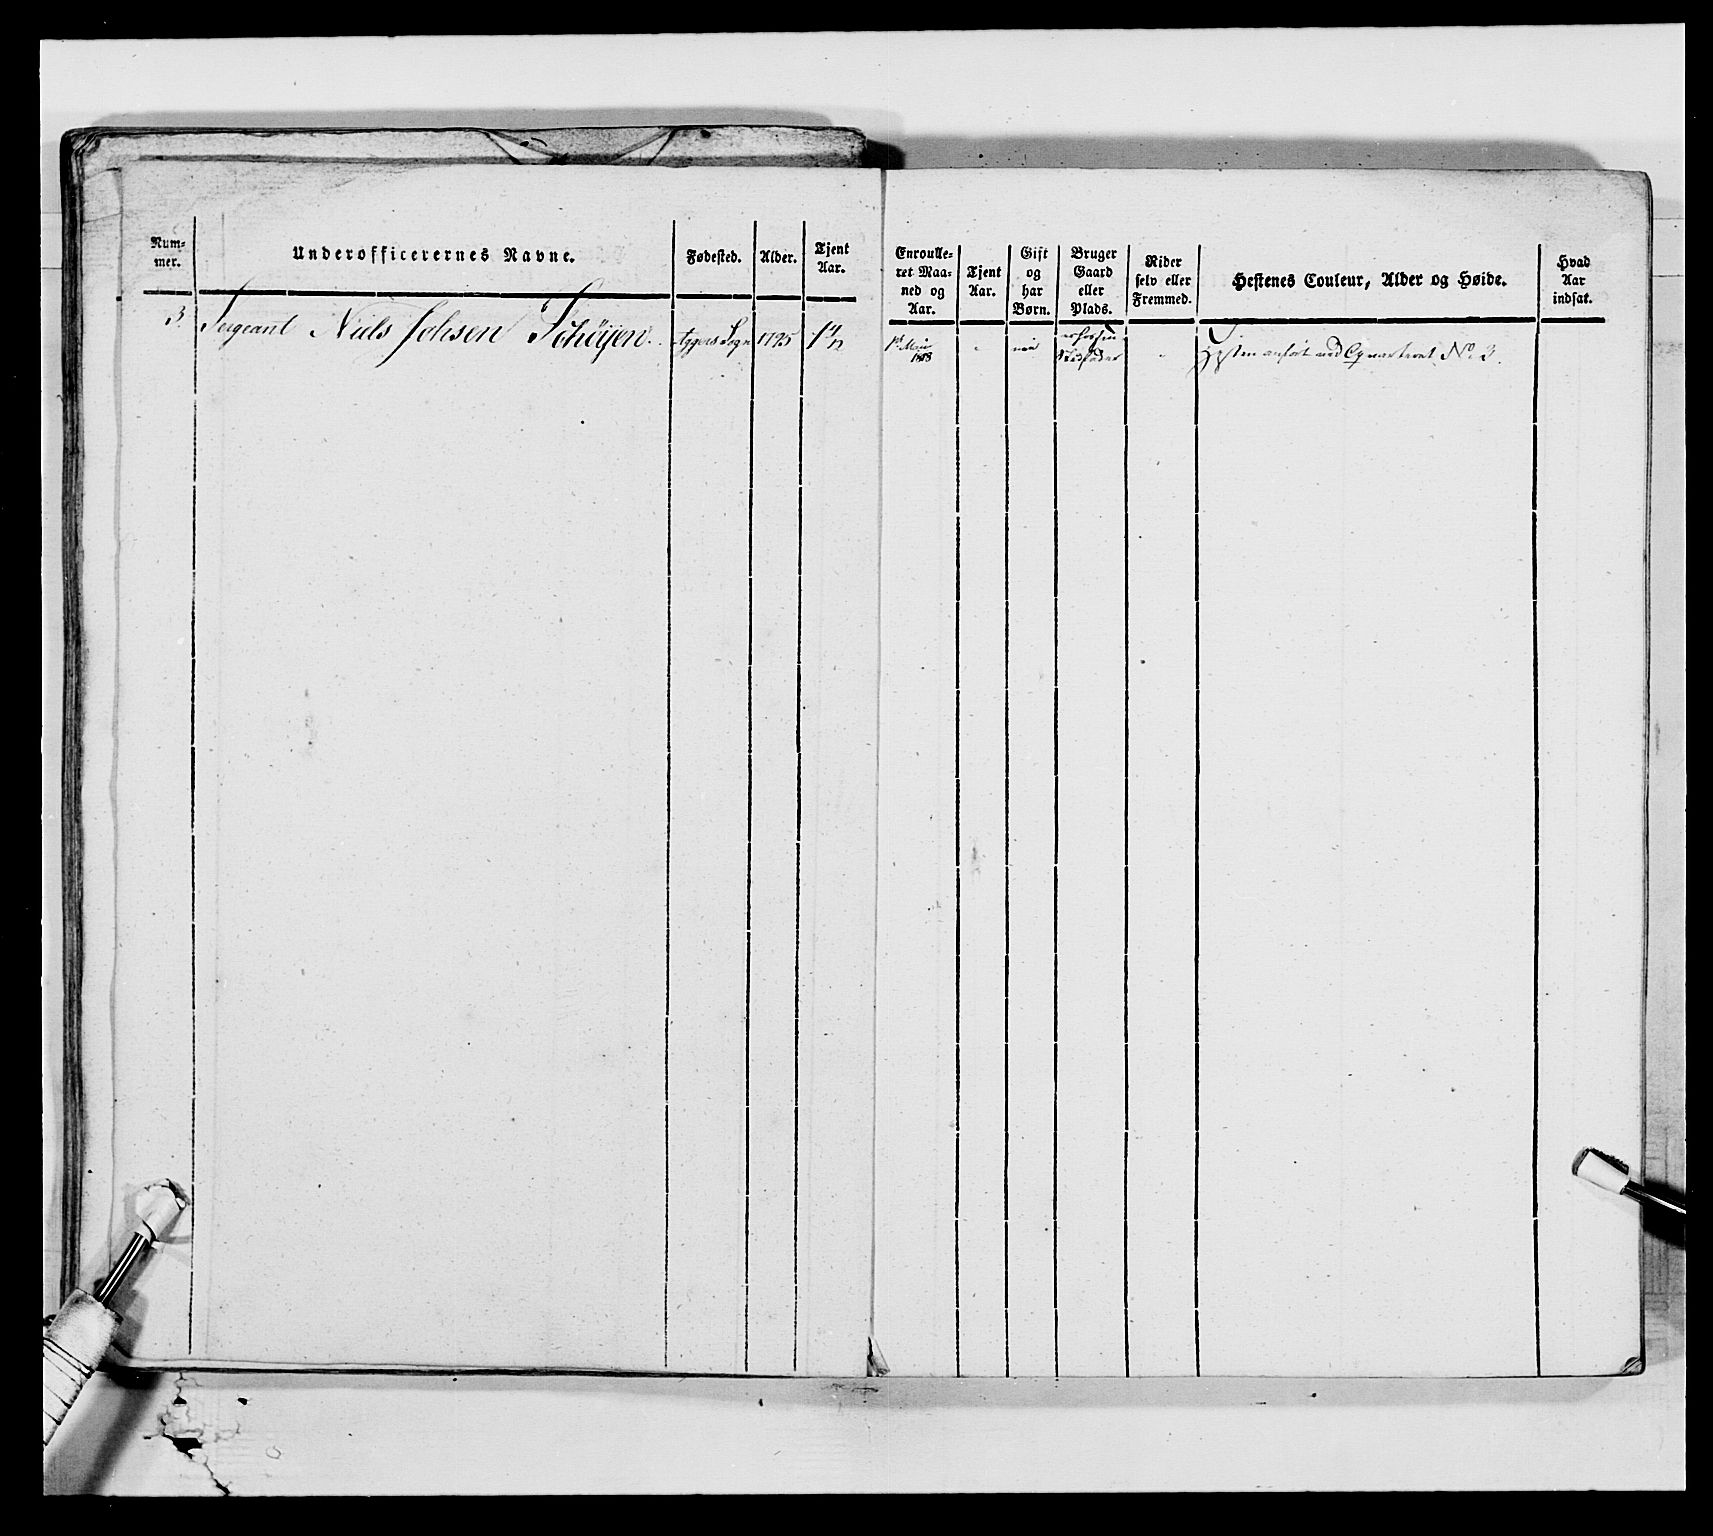 Num-
mer.
Underofficerernes Navne.
Fødested.
Alder.
Tjent
Aar.
Enroulle-
ret Maa-
ned og
Aar.
Tjent
Aar.
Gift
og
har
Børn.
Bruger
Gaard
eller
Plads.
Rider
selv eller
Fremmed.
Hestenes Couleur, Alder og Høide.
Hvad
Aar
indsat.
3. Sergeant Niels Johsen Schøijen. Aggers Sogn 1795
1ste Maii
1818
nei
Stedfader
Hesten anført ved Qvarteret No. 3.